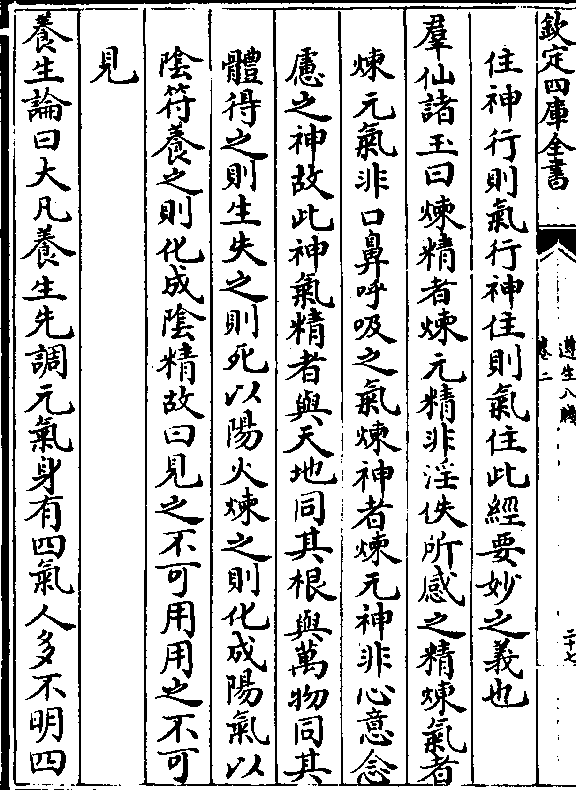 欽定四庫全書
遵生八牋
卷二
二十七
住神行則氣行神住則氣住此經要妙之義也
羣仙諸玉曰煉精者煉元精非淫佚所感之精煉氣者
煉元氣非口鼻呼吸之氣煉神者煉元神非心意念
慮之神故此神氣精者與天地同其根與萬物同其
體得之則生失之則死以陽火煉之則化成陽氣以
陰符養之則化成陰精故曰見之不可用用之不可
見
養生論曰大凡養生先調元氣身有四氣人多不明四